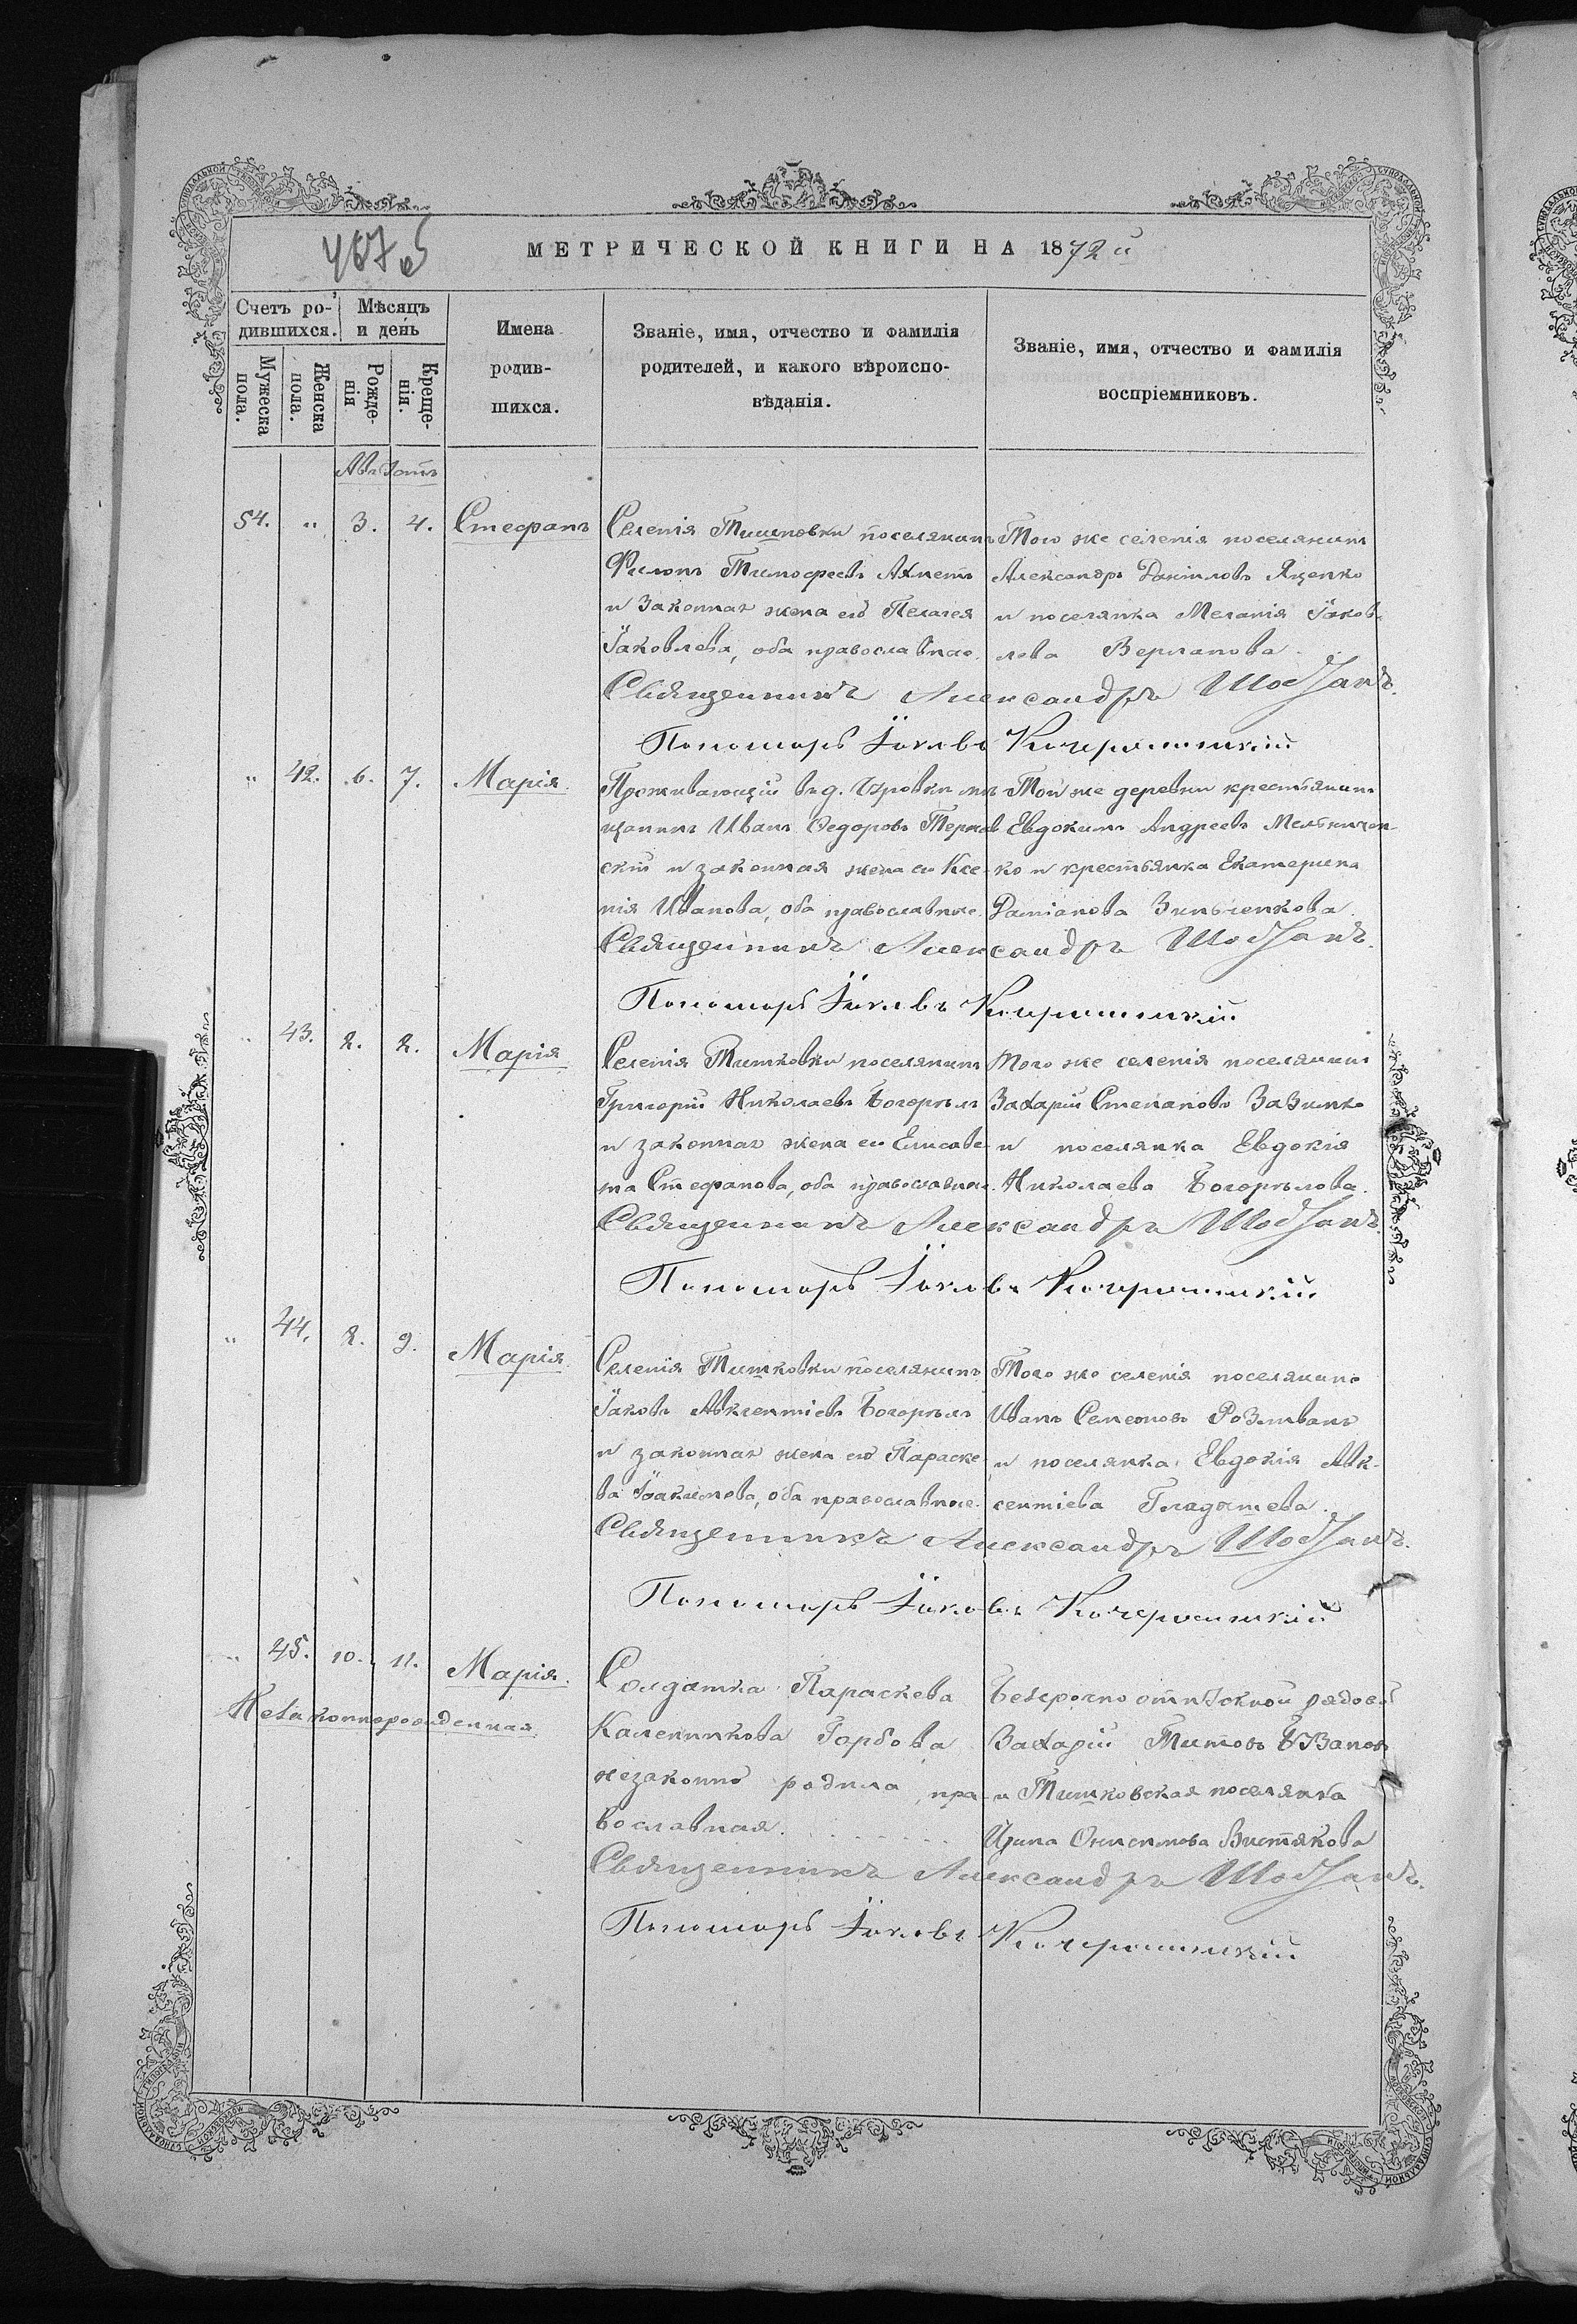 МЕТРИЧЕСКОЙ КНИГИ НА 1872й
Счетъ ро-
дившихся.
Мѣсяцъ
и день
Мужеска
пола.
Женска
пола.
Рожде-
нія
Креще-
нія.
Имена
родив-
шихся.
Званіе, имя, отчество и фамилія
родителей, и какого вѣроиспо-
вѣданія.
Званіе, имя, отчество и фамилія
воспріемниковъ.
Августъ
54. „ 3. 4. Стефанъ
Селенія Тишковки поселянинъ
Филипъ Тимофеевъ
и законная жена его Пелагея
Іаковлева, оба православные.
Того же селенія поселянинъ
Александръ Даніиловъ Яценко
и поселянка Меланія Іаков-
лева Верланова.
Священникъ Александръ
Пономарь Іаковъ
„ 42. 6. 7. Марія.
Проживающій въ д. мѣ-
щанинъ Иванъ Ѳедоровъ Тернов
скій и законная жена его Ксе-
нія Иванова, оба православные.
Той же деревни крестьянинъ
Евдокимъ Андреевъ Мельничен-
ко и крестьянка Екатерина
Даміанова Зинченкова.
Священникъ Александръ
Пономарь Іаковъ
„ 43. 2. 2. Марія
Селенія Тишковки поселянинъ
Григорій Николаевъ Богорѣлъ
и законная жена его Елисаве-
та Стефанова, оба православные.
Того же селенія поселянинъ
Захарій Степановъ Зазимко
и поселянка Евдокія
Николаева Богорѣлова.
Священникъ Александръ
Пономарь Іаковъ
„ 44. 8. 9. Марія
Селенія Тишковки поселянинъ
Іаковъ Авксентіевъ Богорѣлъ
и законная жена его Параске-
ва Іоакимова, оба православные.
Того же селенія поселянинъ
Иванъ Семеновъ
и поселянка Евдокія Авк-
сентіева Гладышева.
Священникъ Александръ
Пономарь Іаковъ
„ 45. 10. 11. Марія.
Незаконнорожденная
Солдатка Параскева
Калениκова Горбова
незаконно родила, пра-
вославная.
Безсрочно отпускной рядовой
Захарій Титовъ
и Тишковская поселянка
Ирина Онисимова
Священникъ Александръ
Пономарь Іаковъ